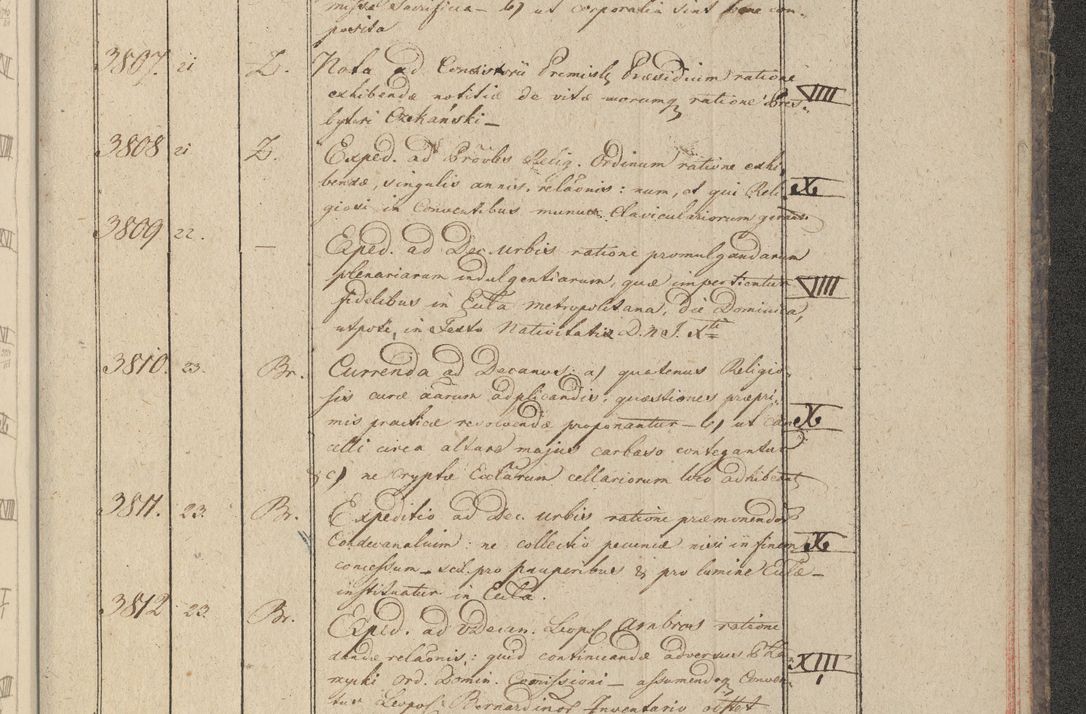 missa Sacrificia — b) ut corporalia sint bene com-
posita
3807. 21 Z. Nota ad Consistorii Premisl. Præsidium ratione
exhibendæ notitiæ de vitæ morumq ratione Pres- VIIII
byteri Czekański —
3808 21 Z. Exped. ad Prõvles Relig. Ordinum ratione exhi-
bendæ, singulis annis, relãonis: num, et qui Reli- X
giosi in Conventibus munus Claviculariorum gerant.
3809 22. — Exped. ad Dec. Urbis ratione promulgandarum
plenariarum indulgentiarum, quæ impertientur VIIII
fidelibus in Eccla Metropolitana, Die Dominica,
utpote, in Festo Nativitatis D. N. J. Xti
3810. 23. Br. Currenda ad Decanos: a) quatenus Religio-
sis curæ aarum adplicandis, quæstiones præpri-
mis practicæ resolvendæ proponantur — b) ut can- X
celli circa altare majus carbaso contegantur
& c) ne cryptæ Ecclarum cellariorum loco adhibeant
3811. 23. Br. Expeditio ad Dec. Urbis ratione præmonendor
Condecanalium: ne collectio pecuniæ nisi in finem X
concessum — scil. pro pauperibus & pro lumine Ecclæ —
instituatur in Eccla.
3812 23. Br. Exped. ad VDecan. Leopol Ambros ratione
dandæ relãonis: quid continuandæ adversus P.
Ord. Domin. Comissioni — assumendoq Conven- XIII
tus Leopol. Bernardinor Inventario